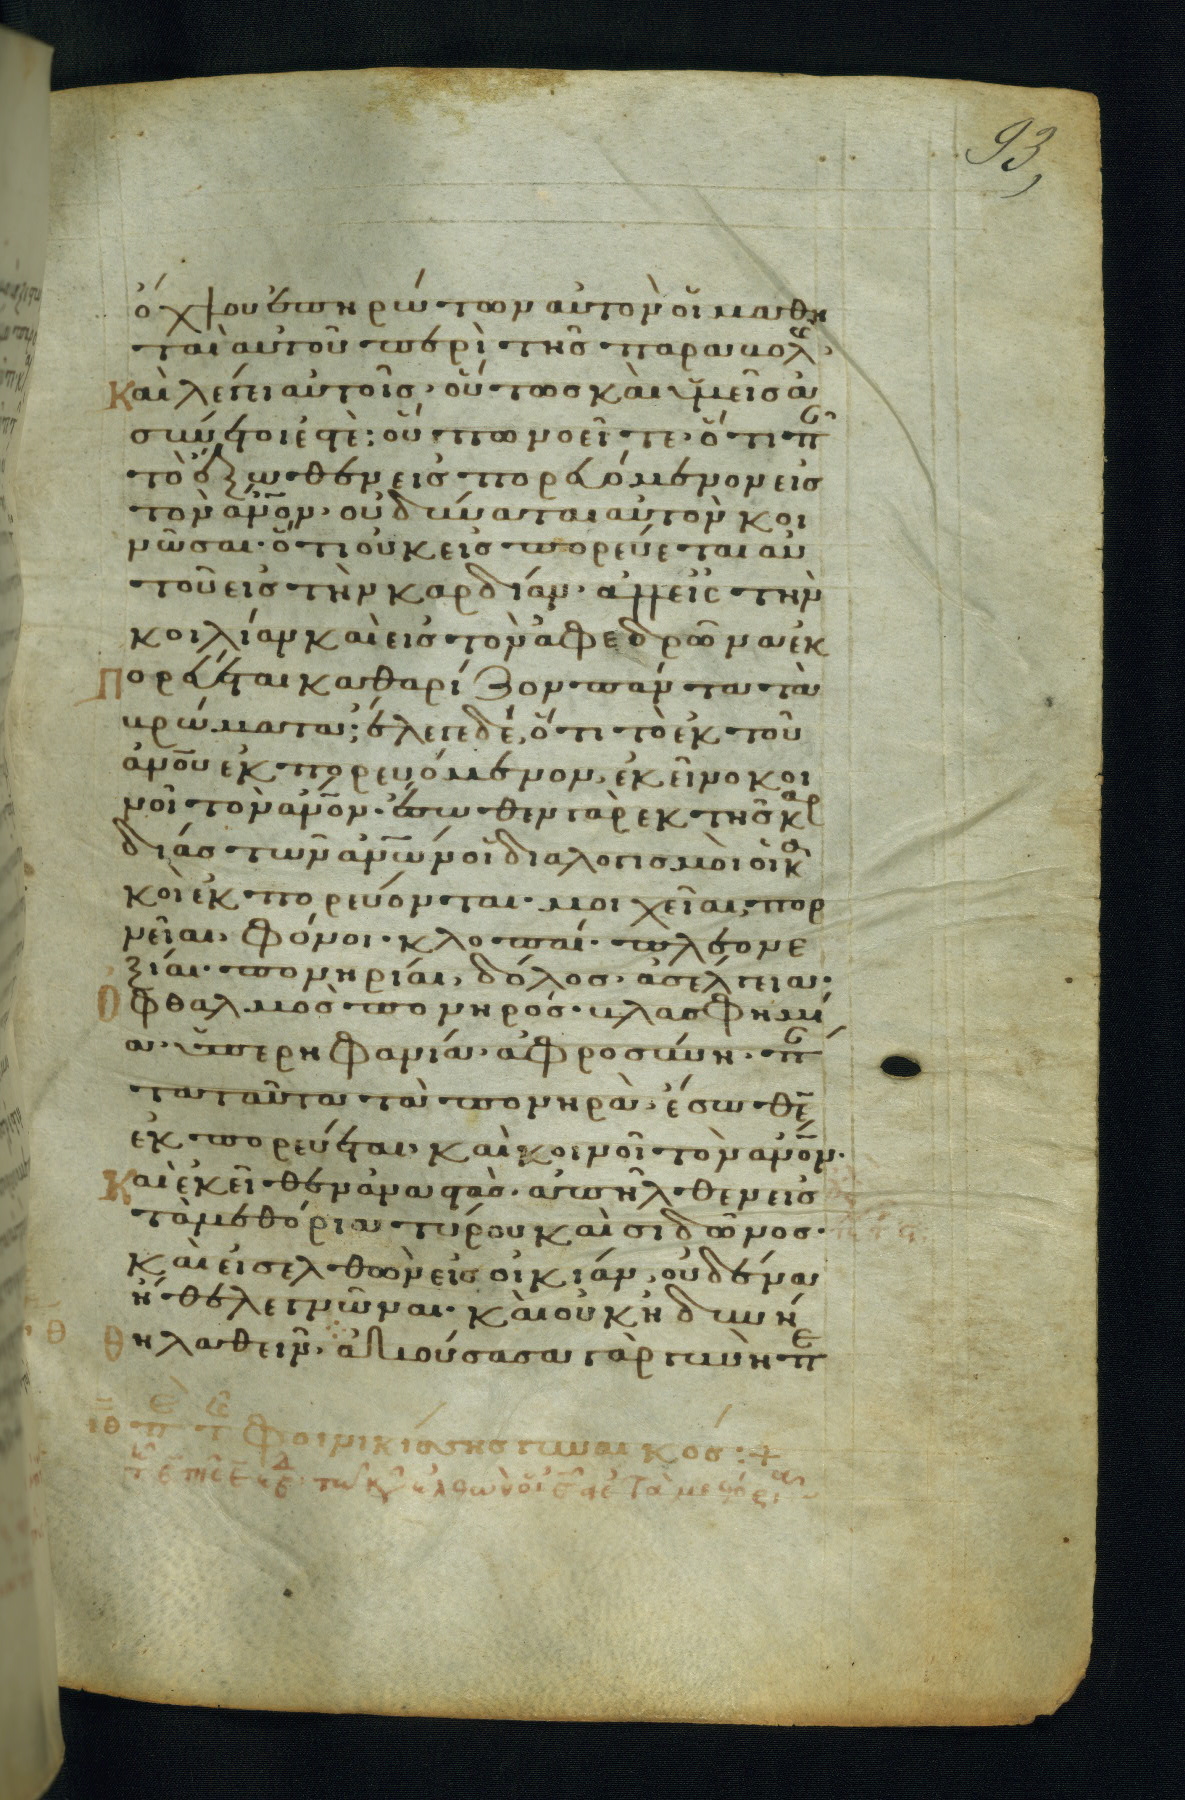 93
ὄχλου ἐπηρώτων αὐτὸν οἱ μαθη
ταὶ αὐτοῦ περὶ τῆς παραβολῆς·
Καὶ λέγει αὐτοῖς· οὕτως καὶ ὑμεῖς ἀ
σύνετοί ἐστέ; οὔπω νοεῖτε· ὅτι πᾶν
τὸ ἔξωθεν εἰσπορευόμενον εἰς
τὸν ἄνον· οὐ δύναται αὐτὸν κοι
νῶσαι· ὅτι οὐκ εἰσπορεύεται αὐ
τοῦ εἰς τὴν καρδίαν· ἀλλ εἰς τὴν
κοιλίαν καὶ εἰς τὸν ἀφεδρῶνα ἐκ
Πορεύεται καθαρίζον πάντα τὰ
βρώματα; ἔλεγε δέ, ὅτι τὸ ἐκ τοῦ
ἀνου ἐκπορευόμενον, ἐκεῖνο κοι
νοῖ τὸν ἄνον· ἔσωθεν γὰρ ἐκ τῆς καρ
δίας τῶν ἀνων οἱ διαλογισμοὶ οἱ κα
κοὶ ἐκπορεύονται· μοιχεῖαι, πορ
νεῖαι, φόνοι· κλοπαί· πλεονε
ξίαι· πονηρίαι, δόλος· ἀσέλγεια·
Ὀφθαλμὸς πονηρός· βλασφημί
α· ὑπερηφανία· ἀφροσύνη· πάν
τα ταῦτα τὰ πονηρὰ, ἔσωθεν
ἐκπορεύεται, καὶ κοινοῖ τὸν ἄνον·
Καὶ ἐκεῖθεν ἀναστὰς· ἀπῆλθεν εἰς
τὰ μεθόρια τύρου καὶ σιδῶνος·
καὶ εἰσελθὼν εἰς οἰκίαν, οὐδένα
ἤθελε γνῶναι· καὶ οὐκ ἠδυνή
θη λαθεῖν· ἀκούσασα γὰρ γυνὴ πε
ιθ πε τ φοινικίσσης γυναικός:+